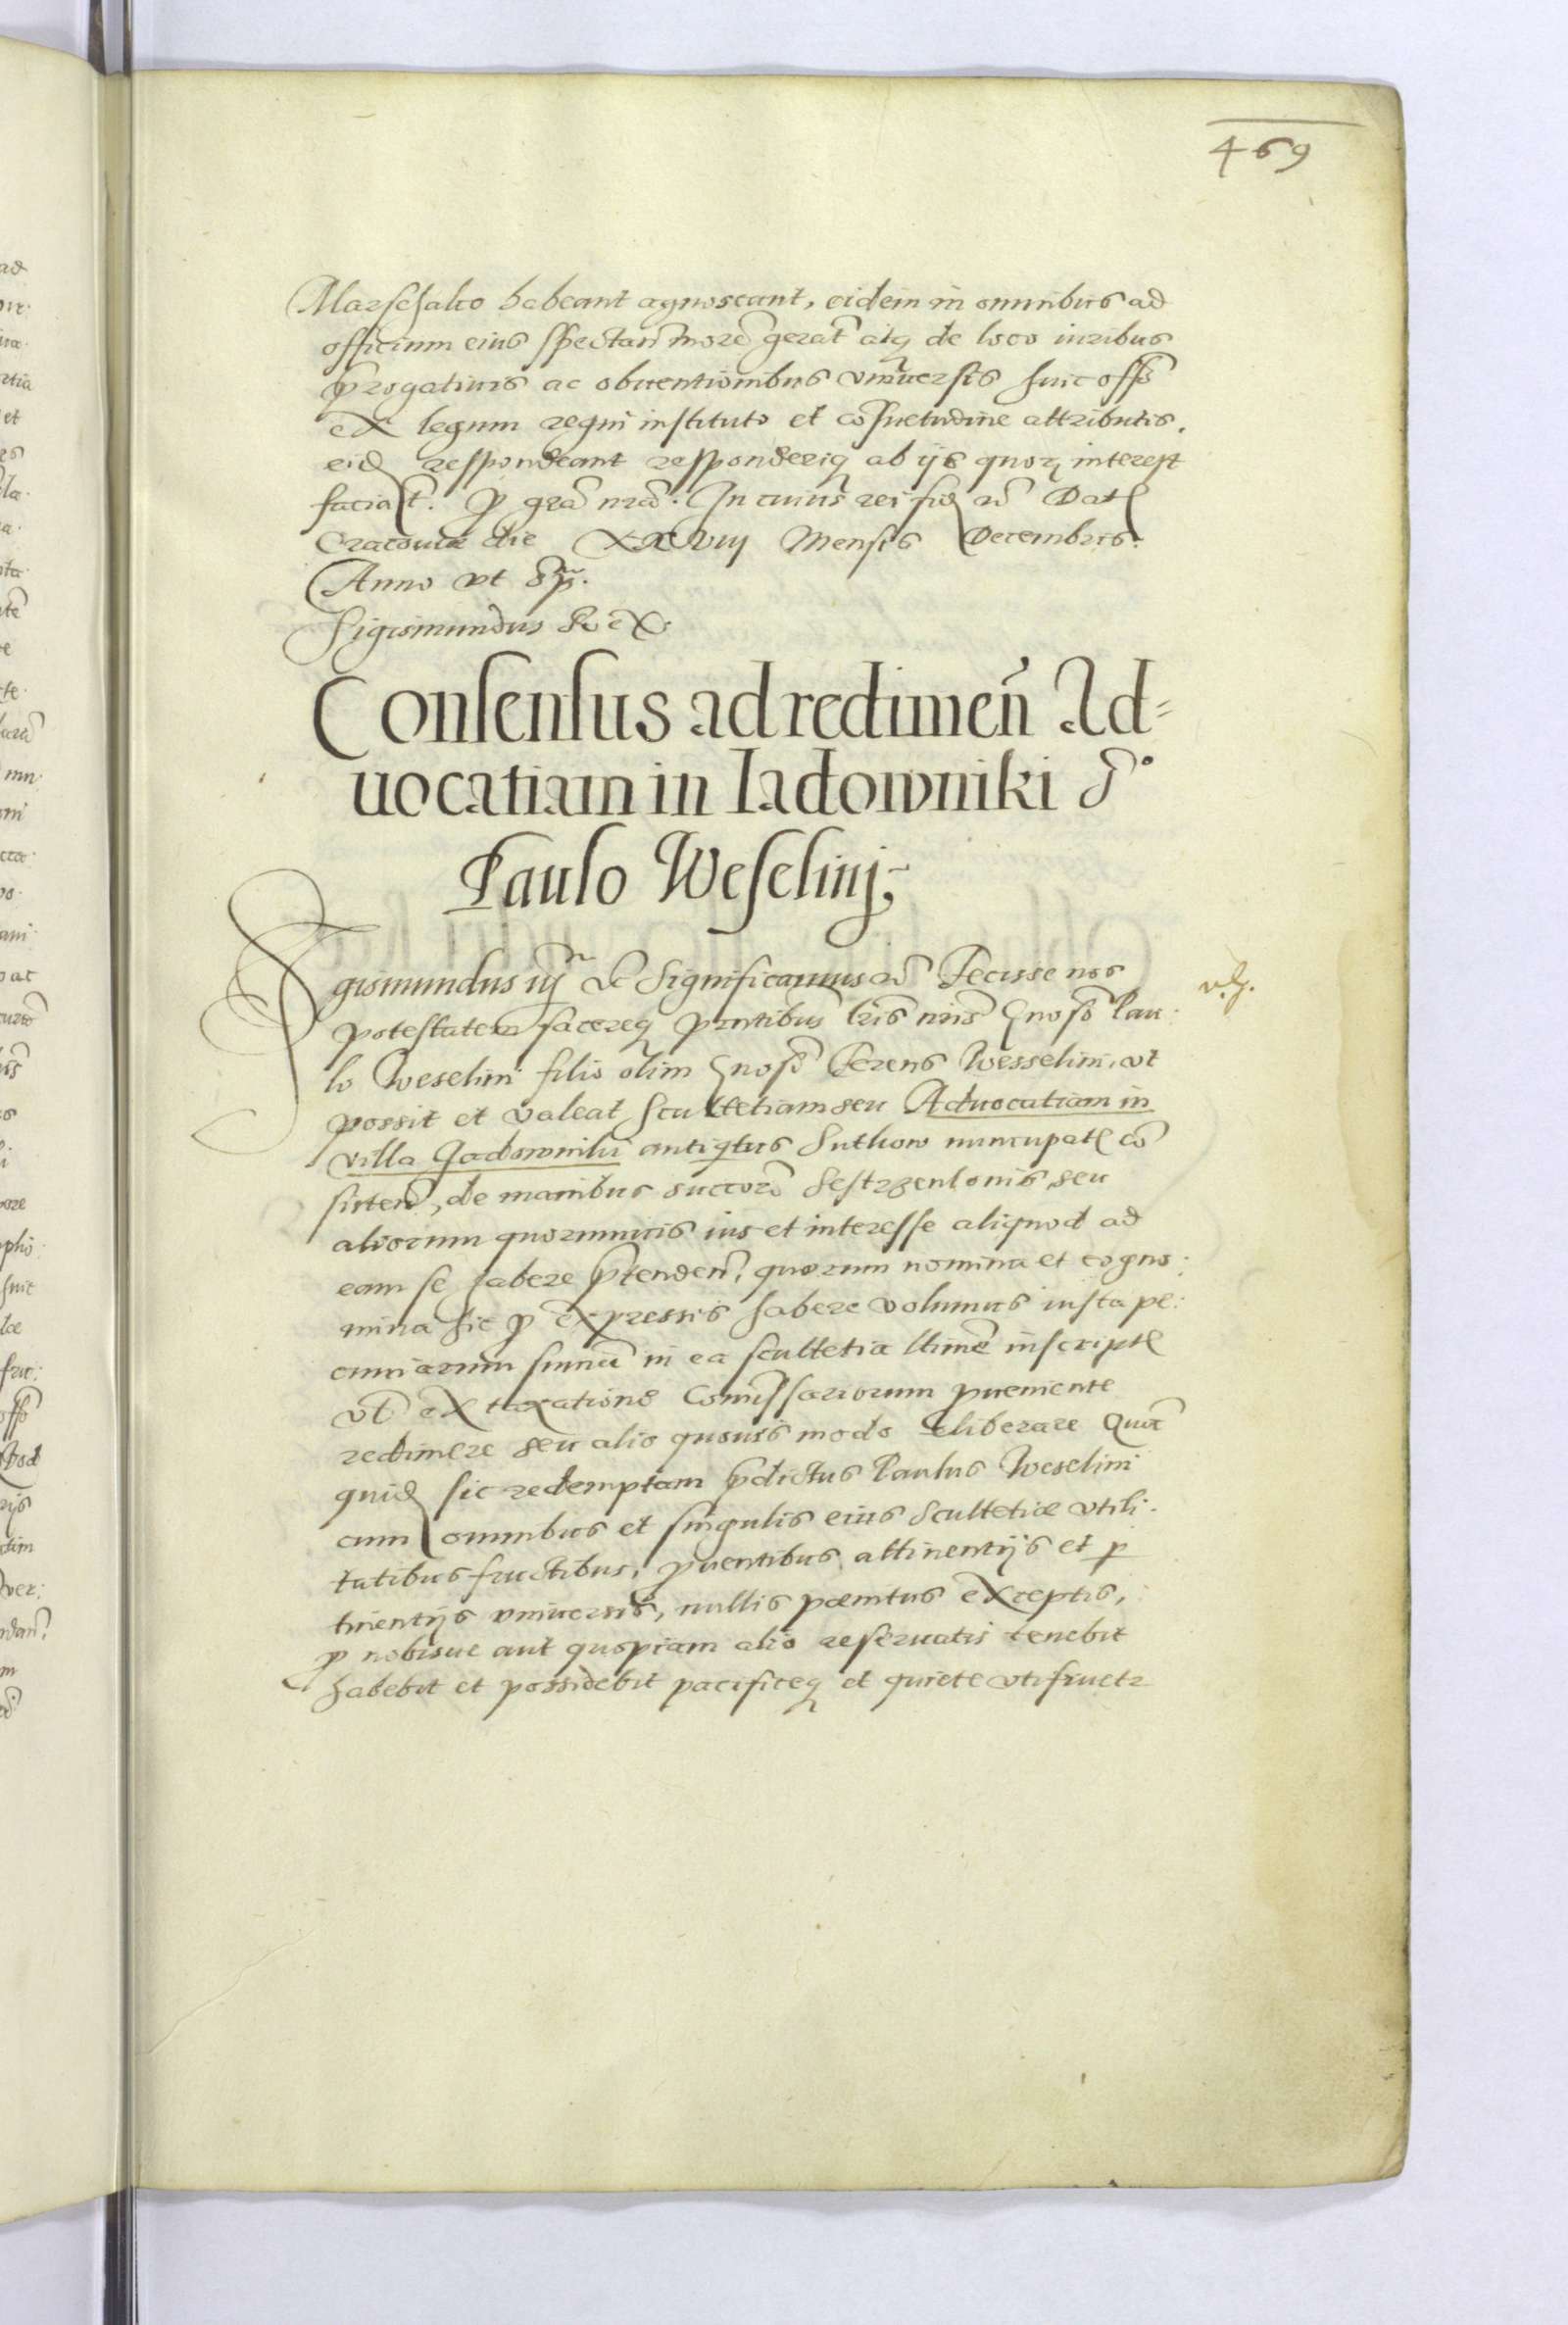 469
Marschalco habeant agnoscant, eidem in omnibus ad
officium eius spectan̄ morē gerāt atq de loco iuribus
p̄rogatiuis ac obuentionibus vniuersis huic offō
ex legum regni instituto et cōsuetudine attributis,
eid respondeant responderiq ab ijs quoꝝ interest
faciāt. P grā nrā. In cuius rei fid Dat
Cracouiæ die XXVIII Mensis Decembris.
Anno vt sp.
Sigismundus Rex.
Consensus ad redimen̄ Ad=
uocatiam in Iadowniki G°
Paulo Weselinj;
Sigismundus iij Significamus Fecisse nos
potestatem facereq pn̄tibus lrīs nrīs Gnoso Pau
lo Weselini filio olim Gnosi Ferens Wesselini, vt
possit et valeat scultetiam seu Aduocatiam in
villa Jadowniki antiqtus Suthow nuncupat cō
sisten̄, de manibus succorū Sestrzenlonis seu
aliorum quorumuis ius et interesse aliquod ad
eam se habere p̄tenden̄, quorum nomina et cogno:
mina hic p expressis habere volumus iuxta pe:
cuniarum sum̄ā in ea scultetia ltimē inscript
vel ex taxatione Comissariorum pueniente
redimere seu alio quouis modo eliberare Quā
quid sic redemptam p̄dictus Paulus Weselini
cum omnibus et singulis eius scultetiæ vtili.
tatibus fructibus, puentibus attinentijs et p
tinentijs vniuersis, nullis pœnitus exceptis,
p nobisue aut quopiam alio reseruatis tenebit
habebit et possidebit pacificeq et quiete vtifruetr